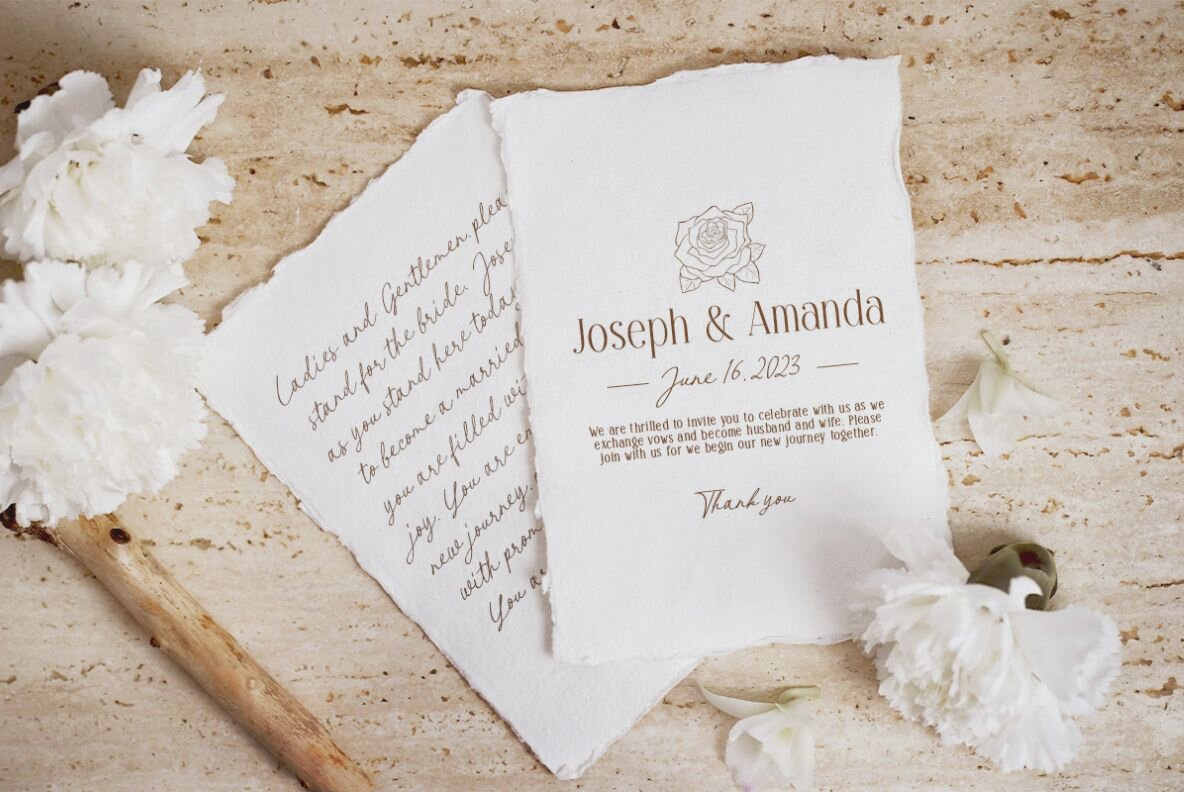 Ladies and Gentlemen, plea
stand for the bride. Jose
as you stand here today
to become a married
you are filled wi
joy. You are en
new journey,
with prom
You a
Joseph & Amanda
June 16, 2023
We are thrilled to invite you to celebrate with us as we
exchange vows and become husband and wife. Please
join with us for we begin our new journey together.
Thank you